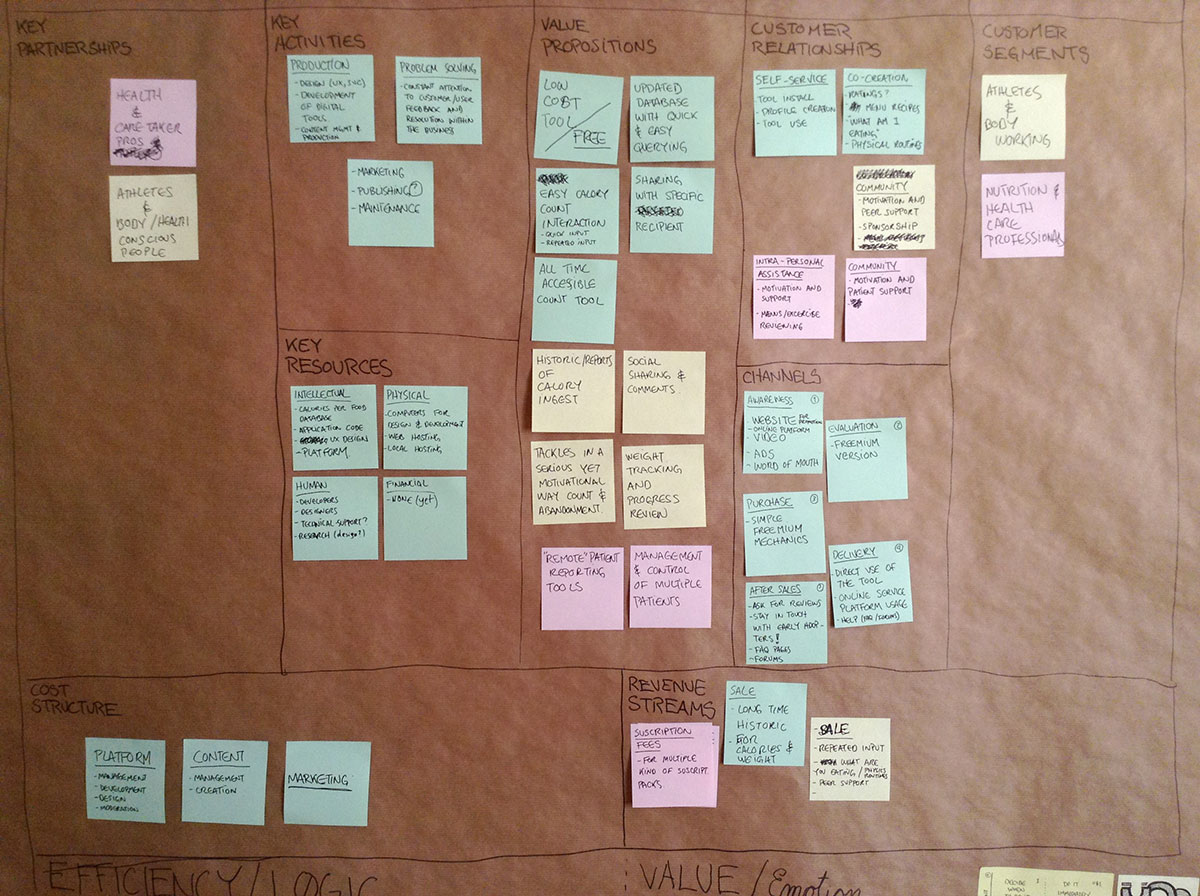 KEY
PARTNERSHIPS
HEALTH
&
CARE TAKER
PROS
ATHLETES
&
BODY/HEALTH
CONSCIOUS
PEOPLE
KEY
ACTIVITIES
PRODUCTION
- DESIGN (UX, SVC)
- DEVELOPMENT
OF DIGITAL
TOOLS
- CONTENT MGMT &
PRODUCTION
PROBLEM SOLVING
- CONSTANT ATTENTION
TO CUSTOMER/USER
FEEDBACK AND
RESOLUTION WITHIN
THE BUSINESS
- MARKETING
- PUBLISHING(?)
- MAINTENANCE
KEY
RESOURCES
INTELLECTUAL
- CALORIES PER FOOD
DATABASE
- APPLICATION CODE
- UX DESIGN
- PLATFORM
PHYSICAL
- COMPUTERS FOR
DESIGN & DEVELOPMENT
- WEB HOSTING
- LOCAL HOSTING
HUMAN
- DEVELOPERS
- DESIGNERS
- TECHNICAL SUPPORT?
- RESEARCH (design?)
FINANCIAL
- NONE (yet)
VALUE
PROPOSITIONS
LOW
COST
TOOL/
FREE
UPDATED
DATABASE
WITH QUICK
& EASY
QUERYING
EASY CALORY
COUNT
INTERACTION
- QUICK INPUT
- REPEATED INPUT
SHARING
WITH SPECIFIC
RECIPIENT
ALL TIME
ACCESIBLE
COUNT TOOL
HISTORIC/REPORTS
OF
CALORY
INGEST
SOCIAL
SHARING &
COMMENTS
TACKLES IN A
SERIOUS YET
MOTIVATIONAL
WAY COUNT &
ABANDONMENT
WEIGHT
TRACKING
AND
PROGRESS
REVIEW
"REMOTE" PATIENT
REPORTING
TOOLS
MANAGEMENT
& CONTROL
OF MULTIPLE
PATIENTS
CUSTOMER
RELATIONSHIPS
SELF-SERVICE
TOOL INSTALL
- PROFILE CREATION
- TOOL USE
CO-CREATION
- RATINGS?
- MENU RECIPES
- "WHAT AM I
EATING"
- PHYSICAL ROUTINES
COMMUNITY
- MOTIVATION AND
PEER SUPPORT
- SPONSORSHIP
INTRA-PERSONAL
ASSISTANCE
- MOTIVATION AND
SUPPORT
- MENUS/EXCERCISE
REVIEWING
COMMUNITY
- MOTIVATION AND
PATIENT SUPPORT
CHANNELS
AWARENESS 1
- WEBSITE FOR PROMOTION
- ONLINE PLATFORM
- VIDEO
- ADS
- WORD OF MOUTH
EVALUATION 2
- FREEMIUM
VERSION
PURCHASE 3
- SIMPLE
FREEMIUM
MECHANICS
DELIVERY 4
- DIRECT USE OF
THE TOOL
- ONLINE SERVICE
PLATFORM USAGE
- HELP (FAQ/FORUMS)
AFTER SALES
- ASK FOR REVIEWS
- STAY IN TOUCH
WITH EARLY ADOP-
TERS!
- FAQ PAGES
- FORUMS
CUSTOMER
SEGMENTS
ATHLETES
&
BODY
WORKING
NUTRITION &
HEALTH
CARE
PROFESSIONALS
COST
STRUCTURE
PLATFORM
- MANAGEMENT
- DEVELOPMENT
- DESIGN
- MODERATION
CONTENT
- MANAGEMENT
- CREATION
MARKETING
REVENUE
STREAMS
SUSCRIPTION
FEES
- FOR MULTIPLE
KIND OF SUSCRIPT
PACKS
SALE
- LONG TIME
HISTORIC
- FOR
CALORIES &
WEIGHT
SALE
- REPEATED INPUT
- WHAT ARE
YOU EATING/PHYSICS ROUTINES
- PEER SUPPORT
-
EFFICIENCY/LOGIC
VALUE/Emotion
DECIDE
WHEN
DO IT
IMMEDIATELY